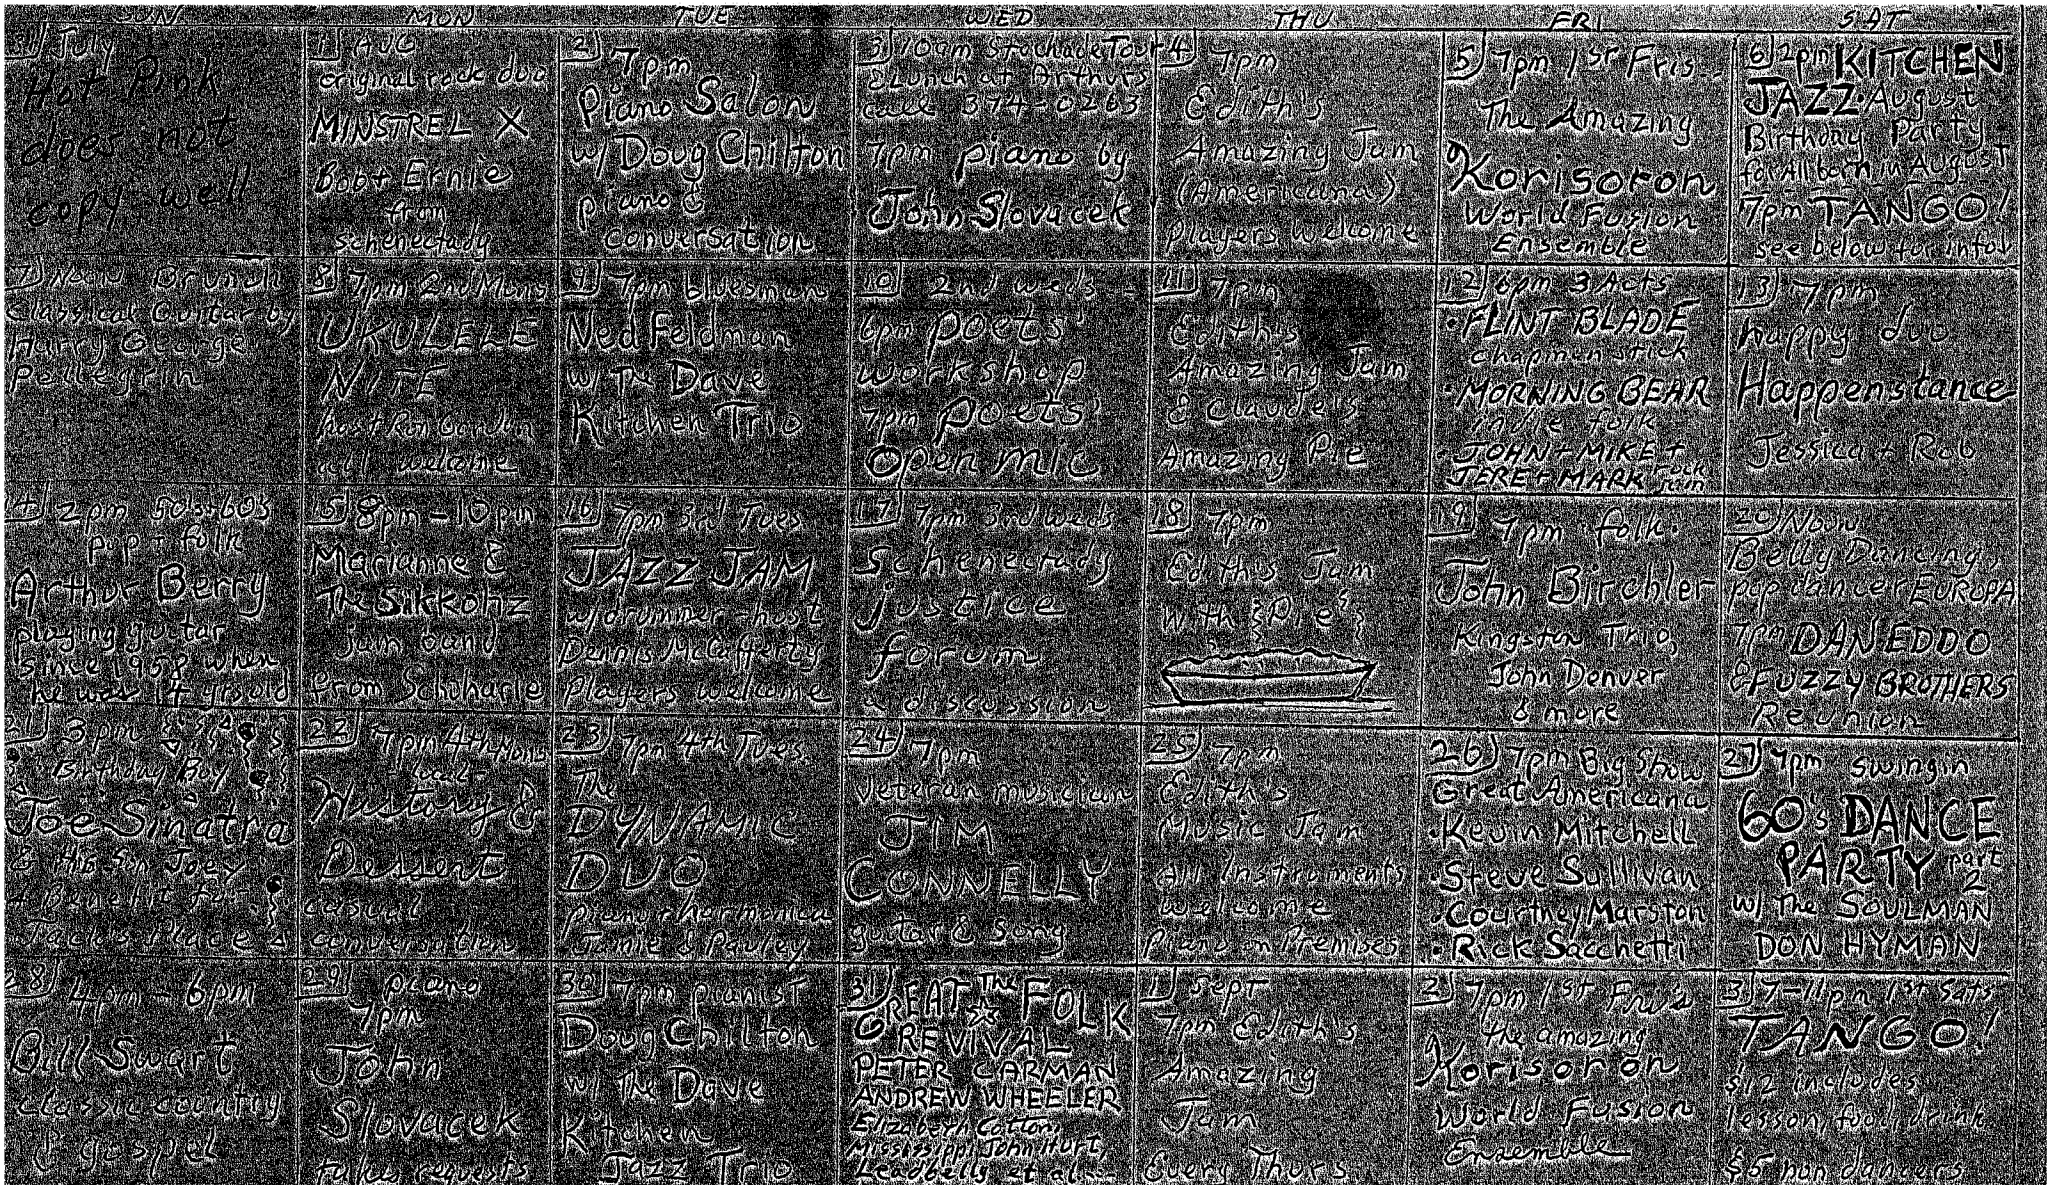 SUN MON TUE WED THU FRI SAT
31 July
Hot Pink
does not
copy well
1 AUG
original rock duo
MINSTREL X
Bob + Ernie
from
schenectady
2 7pm
Piano Salon
w/ Doug Chilton
piano &
conversation
3 10am Stockade Tour
& Lunch at Arthurs
call 374-0263
7pm piano by
John Slovacek
4 7pm
Edith's
Amazing Jam
(Americana)
players welcome
5 7pm 1st Fris..
The Amazing
Korisoron
World Fusion
Ensemble
6 2pm KITCHEN
JAZZ August
Birthday Party
for All born in August
7pm TANGO!
see below for info!
7 Noon Brunch
Classical Guitar by
Harry George
Pellegrin
8 7pm 2nd Mons
UKULELE
NITE
host Ron Gordon
all welcome
9 7pm bluesman
Ned Feldman
w/ The Dave
Kitchen Trio
10 2nd weds -
6pm poets'
workshop
7pm poets'
open mic
11 7pm
Edith's
Amazing Jam
& Claude's
Amazing Pie
12 6pm 3 Acts
• FLINT BLADE
chapman stick
• MORNING BEAR
indie folk
• JOHN + MIKE +
JERE + MARK rock jam
13 7pm
happy duo
Happenstance
Jessica + Rob
14 2pm 50s, 60s
pop + folk
Arthur Berry
playing guitar
since 1958 when
he was 14 yrs old
15 8pm - 10pm
Marianne &
The Sikkohz
jam band
from Schoharie
16 7pm 3rd Tues
JAZZ JAM
w/ drummer-host
Dennis McCafferty
Players welcome
17 7pm 3rd weds
Schenectady
justice
forum
a discussion
18 7pm
Edith's Jam
with Pie
19 7pm folk:
John Birchler
Kingston Trio,
John Denver
& more
20 Noon
Belly Dancing,
pop dancer EUROPA
7pm DAN EDDO
& FUZZY BROTHERS
Reunion
21 3pm
Birthday Boy
Joe Sinatra
& His Son Joey
A Benefit for
Jack's Place
22 7pm 4th Mons
local
History &
Dessert
casual
conversation
23 7pm 4th Tues.
The
DYNAMIC
DUO
piano + harmonica
Jamie & Pauley
24 7pm
Veteran musician
JIM
CONNELLY
guitar & song
25 7pm
Edith's
Music Jam
All Instruments
welcome
Piano on Premises
26 7pm Big Show
Great Americana
• Kevin Mitchell
• Steve Sullivan
• Courtney Marston
• Rick Sacchetti
27 7pm swingin
60's DANCE
PARTY part 2
w/ The SOULMAN
DON HYMAN
28 4pm - 6pm
Bill Swart
classic country
& gospel
29 piano
7pm
John
Slovacek
takes requests
30 7pm pianist
Doug Chilton
w/ The Dave
Kitchen
Jazz Trio
31 The
GREAT ☆ FOLK
REVIVAL
PETER CARMAN
ANDREW WHEELER
Elizabeth Cotton,
Mississippi John Hurt,
Leadbelly et al.--
1 Sept
7pm Edith's
Amazing
Jam
Every Thurs
2 7pm 1st Fri's
the amazing
Korisoron
World Fusion
Ensemble
3 7-11pm 1st Sats
TANGO!
$12 includes
lesson, food, drink
$5 non dancers